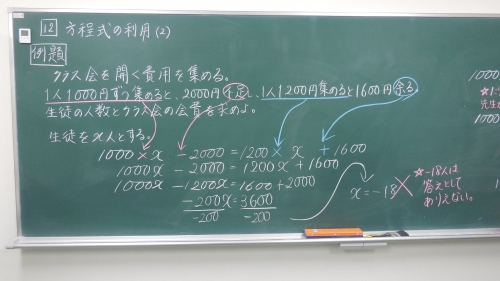 12 方程式の利用(2)
例題
クラス会を開く費用を集める。
1人1000円ずつ集めると、2000円不足し、1人1200円集めると1600円余る。
生徒の人数とクラス会の会費を求めよ。
生徒をx人とする。
1000×x - 2000 = 1200 × x + 1600
1000x - 2000 = 1200x + 1600
1000x - 1200x = 1600 + 2000
-200x = 3600
-200 -200
x = -18
☆-18人は
答えとして
ありえない。
1000